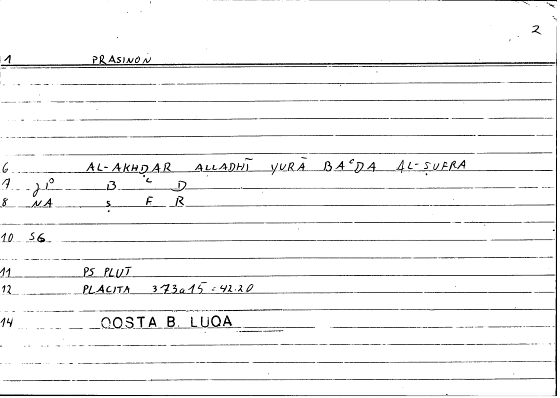 2
1 PRASINON
6 AL-AKHḌAR ALLADHĪ YURĀ BAʿDA AL-ṢUFRA
7 B ʿ D
8 NA Ṣ F R
10 56
11 PS PLUT
12 PLACITA 373a15 = 42.20
14 QOSTA B. LUQA